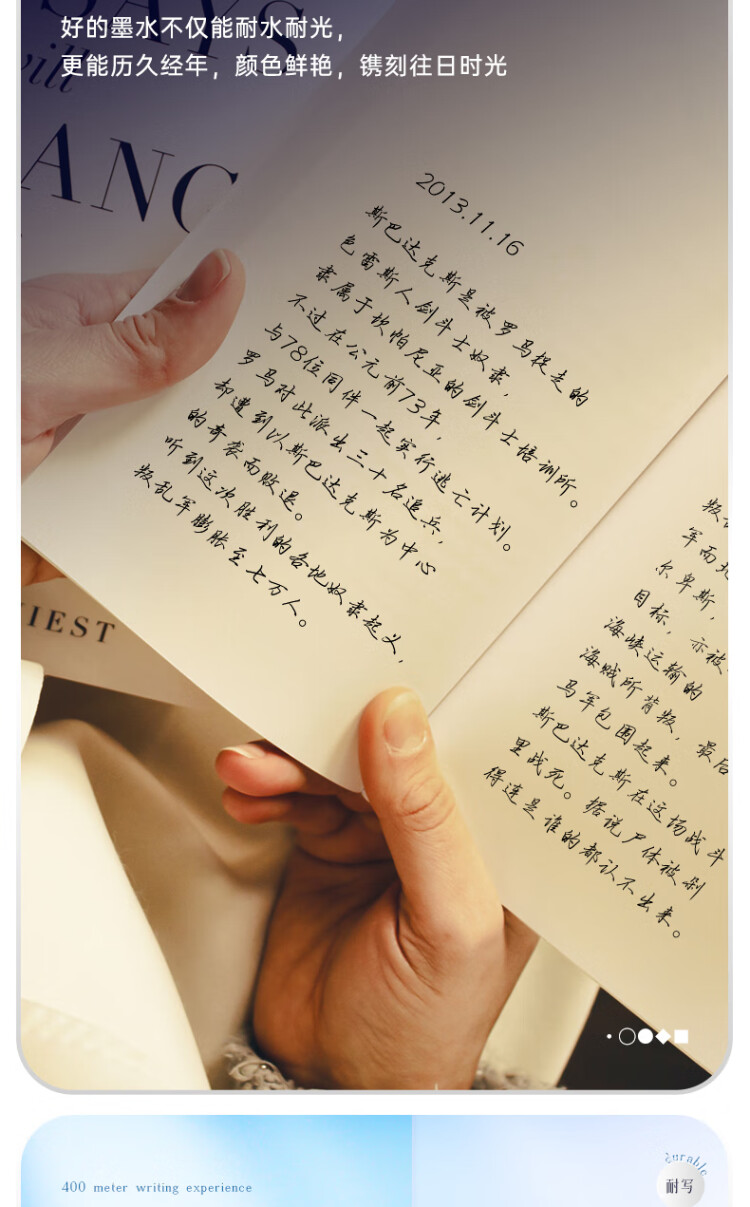 SAYS
will
ANC
好的墨水不仅能耐水耐光，
更能历久经年，颜色鲜艳，镌刻往日时光
2013.11.16
斯巴达克斯是被罗马捉走的
色雷斯人剑斗士奴隶，
隶属于坎帕尼亚的剑斗士培训所。
不过在公元前73年，
与78位同伴一起实行逃亡计划。
罗马对此派出三十名追兵，
却遭到以斯巴达克斯为中心
的奇袭而败退。
听到这次胜利的各地奴隶起义，
叛乱军膨胀至七万人。
IEST
军而北
尔卑斯，
目标，亦被
海峡运输的
海贼所背叛，最后
马军包围起来。
斯巴达克斯在这场战斗
里战死。据说尸体被剁
得连是谁的都认不出来。
400 meter writing experience
durable
耐写